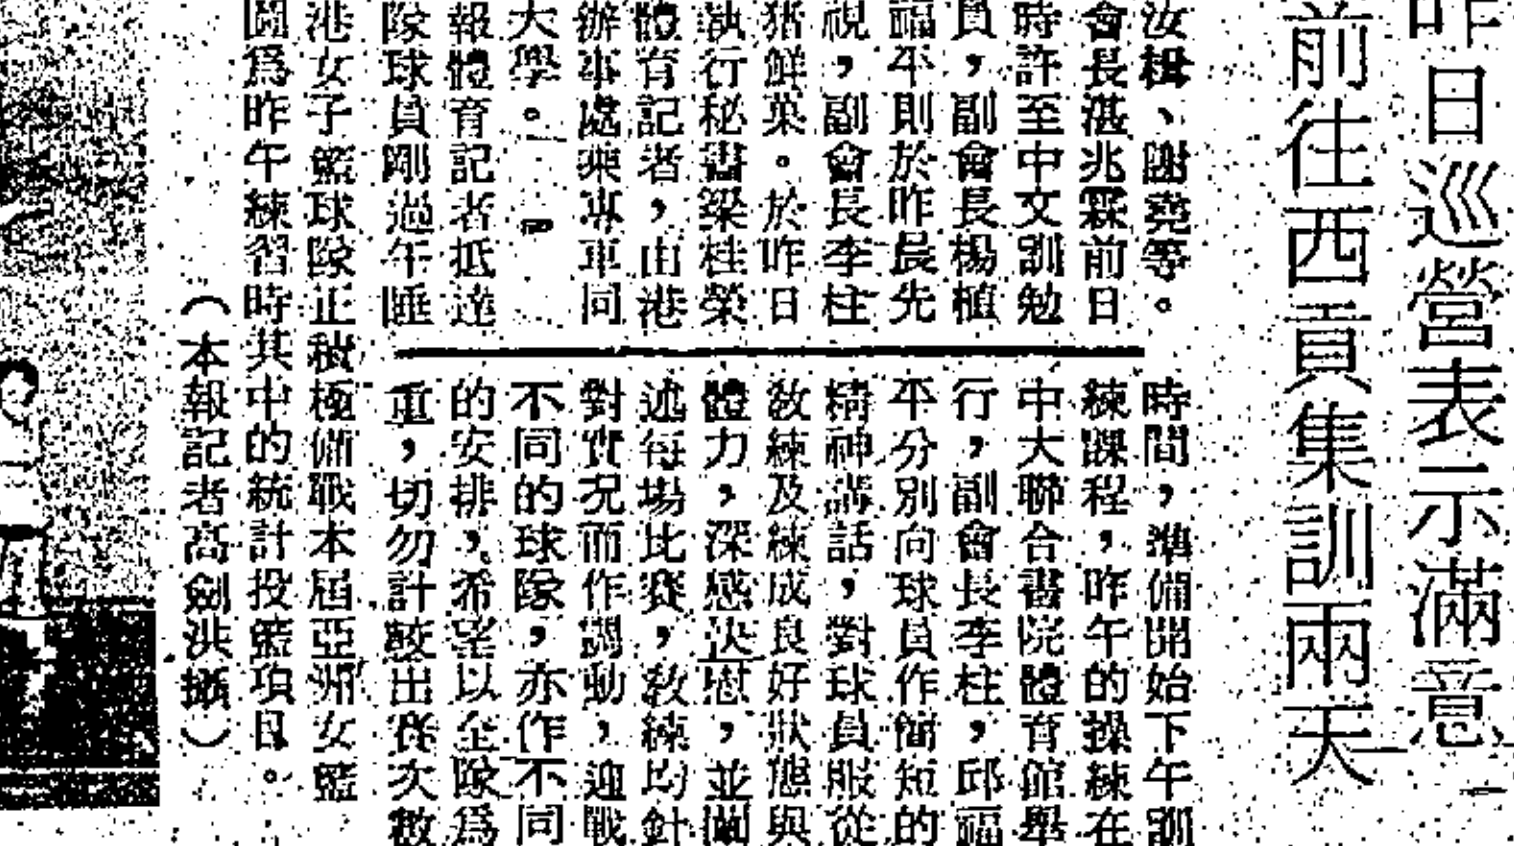 昨日巡營表示滿意
前往西貢集訓兩天
汝楫、謝堯等。
會長湛兆霖前日
時許至中文訓勉
員，副會長楊植
福平則於昨晨先
視，副會長李柱
猪鮮菓。於昨日
執行秘書梁桂榮
體育記者，由港
辦事處乘專車同
大學。
報體育記者抵達
隊球員剛過午睡
時間，準備開始下午訓
練課程，昨午的操練在
中大聯合書院體育館舉
行，副會長李柱，邱福
平分別向球員作簡短的
精神講話，對球員服從
教練及練成良好狀態與
體力，深感快慰，並闡
述每場比賽，教練均針
對實況而作調動，迎戰
不同的球隊，亦作不同
的安排，希望以全隊為
重，切勿計較出賽次數
港女子籃球隊正積極備戰本屆亞洲女籃
圖為昨午練習時其中的統計投籃項目。
（本報記者高劍洪攝）